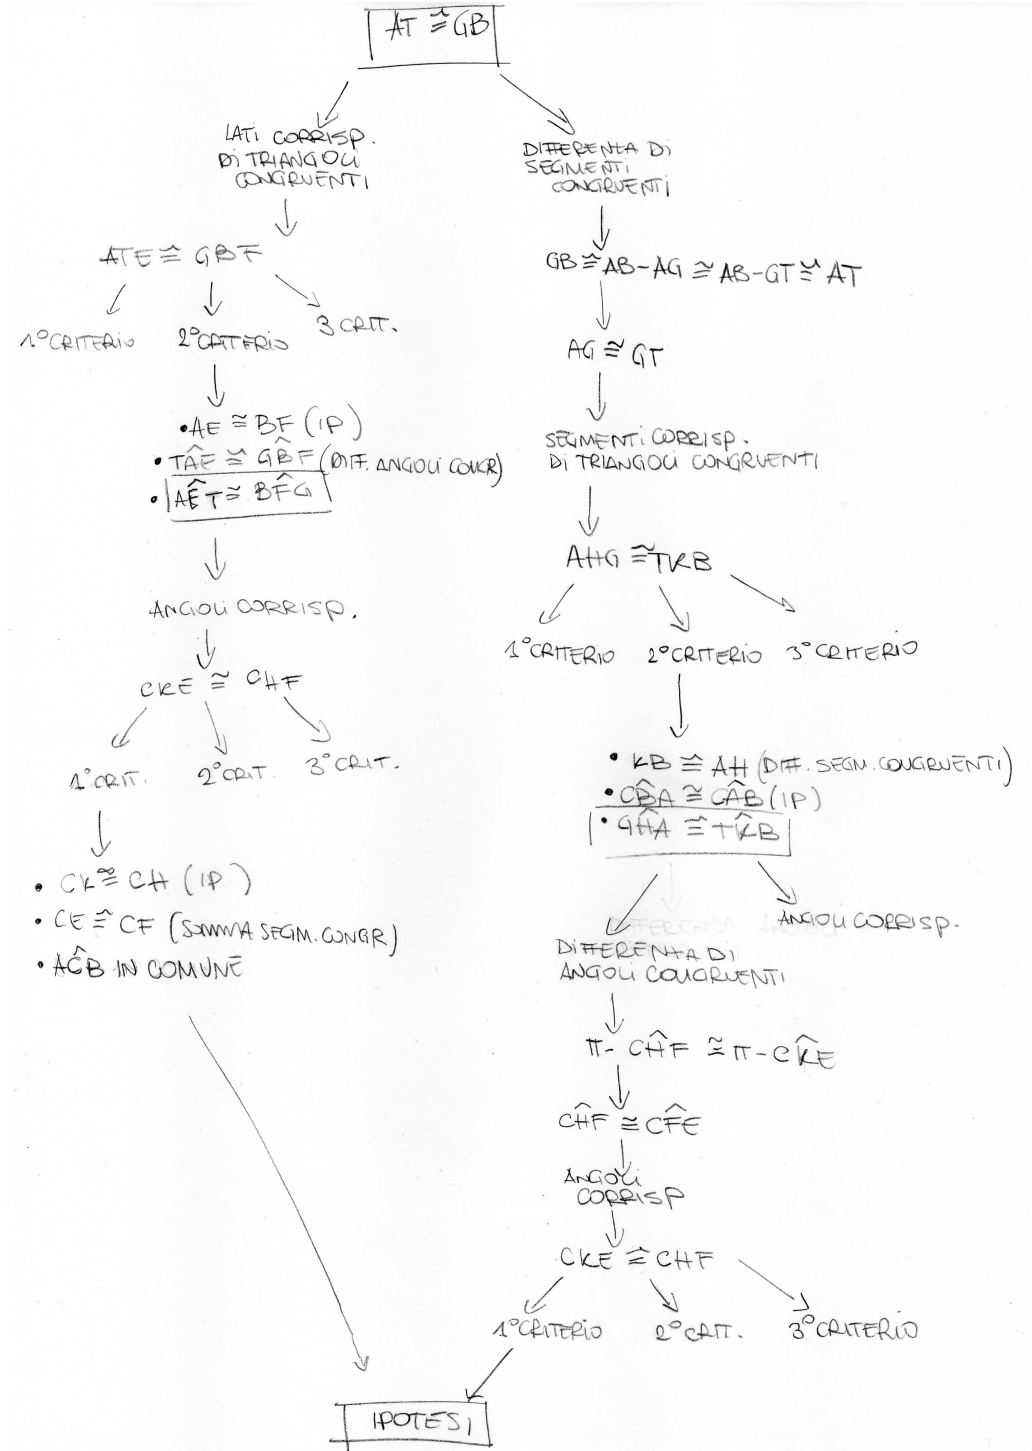 AT ≅ GB
LATI CORRISP.
DI TRIANGOLI
CONGRUENTI
ATE ≅ GBF
1° CRITERIO
2° CRITERIO
3 CRIT.
• AE ≅ BF (IP)
• TÂE ≅ GB̂F (DIFF. ANGOLI CONGR)
• AÊT ≅ BF̂G
ANGOLI CORRISP.
CKE ≅ CHF
1° CRIT.
2° CRIT.
3° CRIT.
• CK ≅ CH (IP)
• CE ≅ CF (SOMMA SEGM. CONGR)
• AĈB IN COMUNE
DIFFERENZA DI
SEGMENTI
CONGRUENTI
GB ≅ AB-AG ≅ AB-GT ≅ AT
AG ≅ GT
SEGMENTI CORRISP.
DI TRIANGOLI CONGRUENTI
AHG ≅ TKB
1° CRITERIO
2° CRITERIO
3° CRITERIO
• KB ≅ AH (DIFF. SEGM. CONGRUENTI)
• CB̂A ≅ CÂB (IP)
• GĤA ≅ TK̂B
DIFFERENZA ANGOLI
ANGOLI CORRISP.
DIFFERENZA DI
ANGOLI CONGRUENTI
π- CĤF ≅ π- CK̂E
CĤF ≅ CF̂E
ANGOLI
CORRISP
CKE ≅ CHF
1° CRITERIO
2° CRIT.
3° CRITERIO
IPOTESI